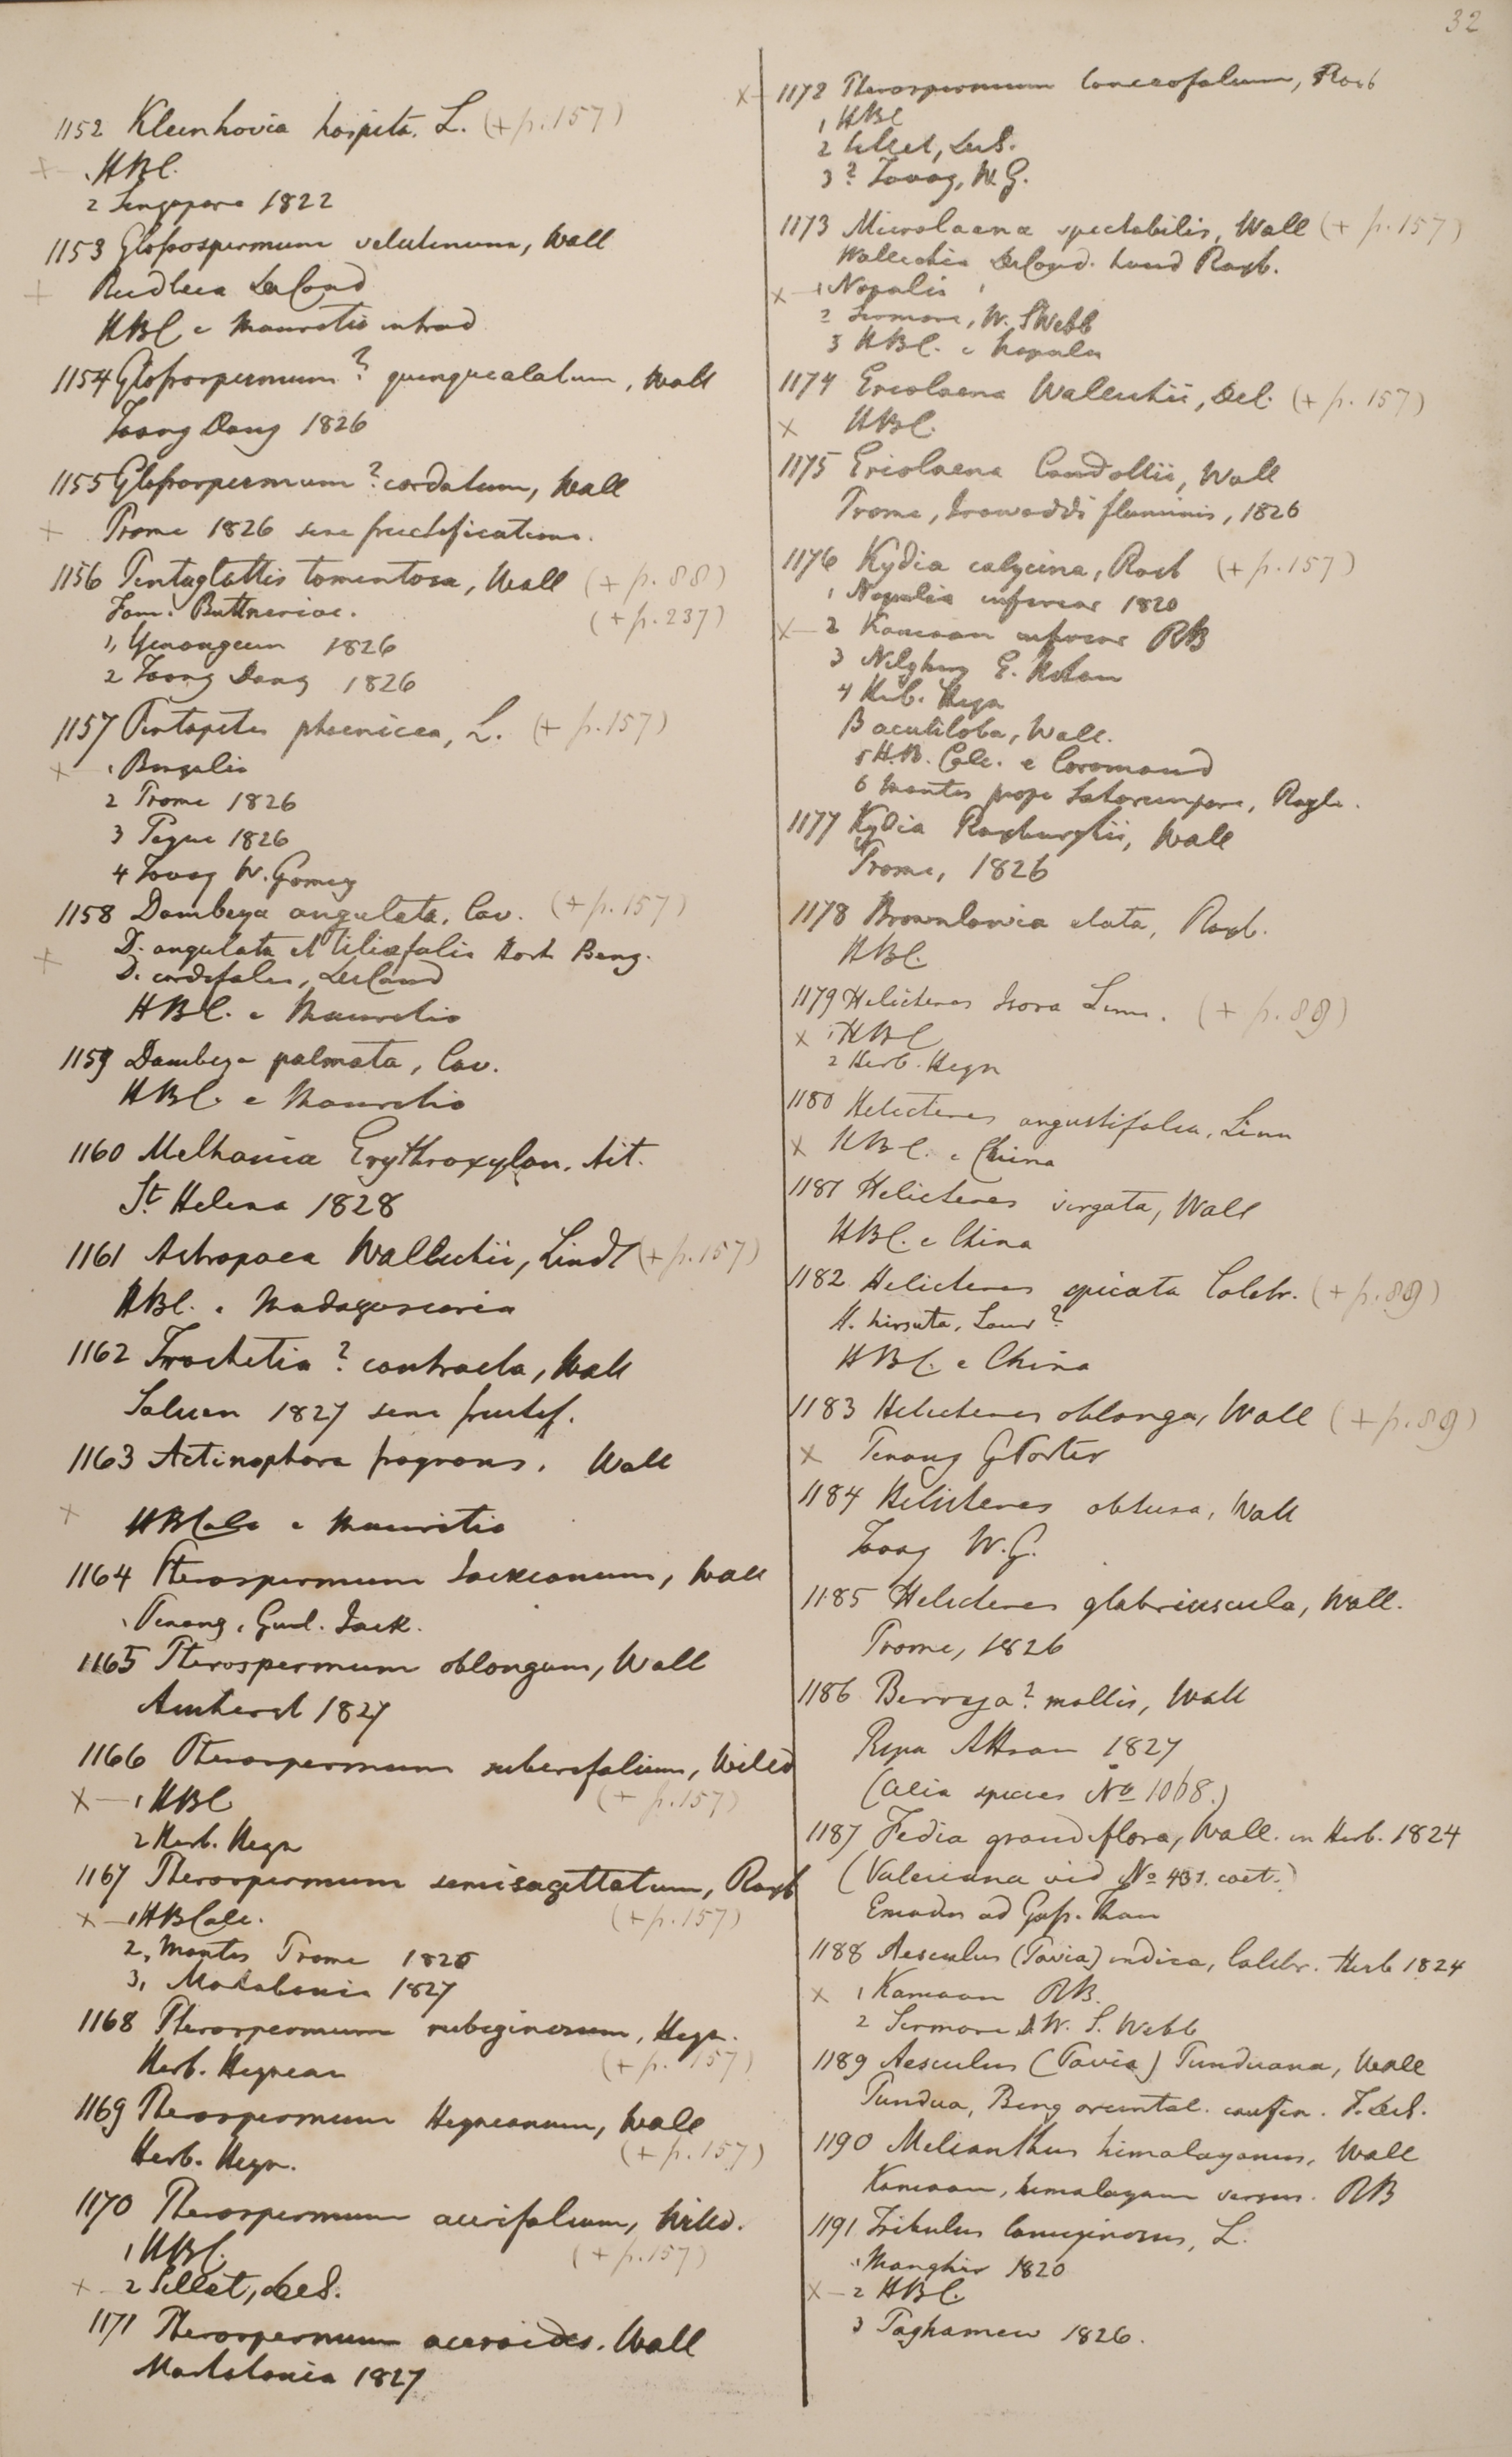 32
1152 Kleinhovia hospita. L. (+ p.157)
1 HBC.
2 Singapore 1822
1153 Glossospermum velutinum, Wall
Reidleia DeCand
HBC e Mauritio introd
1154 Glossospermum? quinquealatum, Wall
Toong Dong 1826
1155 Glossospermum? cordatum, Wall
Prome 1826 sine fructificatione.
1156 Pentaglottis tomentosa, Wall (+ p.88)
Fam. Buttneriac. (+ p.237)
1, Yenangeum 1826
2 Toong Dong 1826
1157 Pentapetes phoenicea, L. (+ p.157)
1 Bengalia
2 Prome 1826
3 Pegue 1826
4 Tavoy W. Gomez
1158 Dombeya angulata, Cav. (+ p.157)
D. angulata et tiliaefolia Hort Beng.
D. cordifolia, DeCand
HBC. e Mauritio
1159 Dombeya palmata, Cav.
HBC. e Mauritio
1160 Melhania Erythroxylon. Ait.
St. Helena 1828
1161 Astrapaea Wallichii, Lindl (+ p.157)
HBC. e Madagascaria
1162 Trochetia? contracta, Wall
Saluen 1827 sine fructif.
1163 Actinophora fragrans. Wall
HBCalc e Mauritio
1164 Pterospermum Jackianum, Wall
Penang, Gul. Jack.
1165 Pterospermum oblongum, Wall
Amherst 1827
1166 Pterospermum suberifolium, Willd
X— 1 HBC (+ p.157)
2 Herb. Heyn
1167 Pterospermum semisagittatum, Roxb
X— 1 HBCalc. (+ p.157)
2, Montes Prome 1826
3, Martabania 1827
1168 Pterospermum rubiginosum, Heyn.
Herb. Heynean (+ p. 157)
1169 Pterospermum Heyneanum, Wall
Herb. Heyn. (+ p.157)
1170 Pterospermum acerifolium, Willd.
1 HBC. (+ p.157)
X— 2 Sillet, DeS.
1171 Pterospermum aceroides. Wall
Martabania 1827
X— 1172 Pterospermum lanceofolium, Roxb
1 HBC
2 Sillet, DeS.
3? Tavoy, W.G.
1173 Microlaena spectabilis, Wall (+ p.157)
Wallichia DeCand. haud Roxb.
X— 1 Napalia
2 Sermore, W. S Webb
3 HBC. e Napala
1174 Eriolaena Wallichii, Dec. (+ p.157)
X HBC.
1175 Eriolaena Candollii, Wall
Prome, Irawaddi fluminis, 1826
1176 Kydia calycina, Roxb (+ p.157)
1 Napalia inferior 1820
X— 2 Kamaon inferior RB
3 Nilghury
4 Herb. Heyn
B acutiloba, Wall.
5 H.B. Calc. e Coromand
6 Montes prope
1177 Kydia Roxburghii, Wall
Prome, 1826
1178 Brownlowia elata, Roxb.
HBC.
1179 Helicteres Isora Linn. (+ p.89)
X 1 HBC
2 Herb. Heyn
1180 Helicteres angustifolia, Linn
X HBC. e China
1181 Helicteres virgata, Wall
HBC. e China
1182 Helicteres spicata Colebr. (+ p.89)
H. hirsuta, Lour?
HBC. e China
1183 Helicteres oblonga, Wall (+ p.89)
X Penang G Porter
1184 Helicteres obtusa, Wall
Tavoy W.G.
1185 Helicteres glabriuscula, Wall.
Prome, 1826
1186 Berrya? mollis, Wall
Ripa Attran 1827
(Alia species No 1068.)
1187 Fedia grandiflora, Wall. in Herb. 1824
(Valeriana vid No 431. caet.)
Emodus ad Gos. Than
1188 Aesculus (Pavia) indica, Colebr. Herb 1824
X 1 Kamaon RB.
2 Sermore D.W. S. Webb
1189 Aesculus (Pavia) Punduana, Wall
Pundua, Beng oriental. confin. F. DeS.
1190 Melianthus himalayanus, Wall
Kamaon, himalayam versus. RB
1191 Tribulus lanuginosus, L.
1 Monghir 1820
X— 2 HBC.
3 Paghamew 1826.